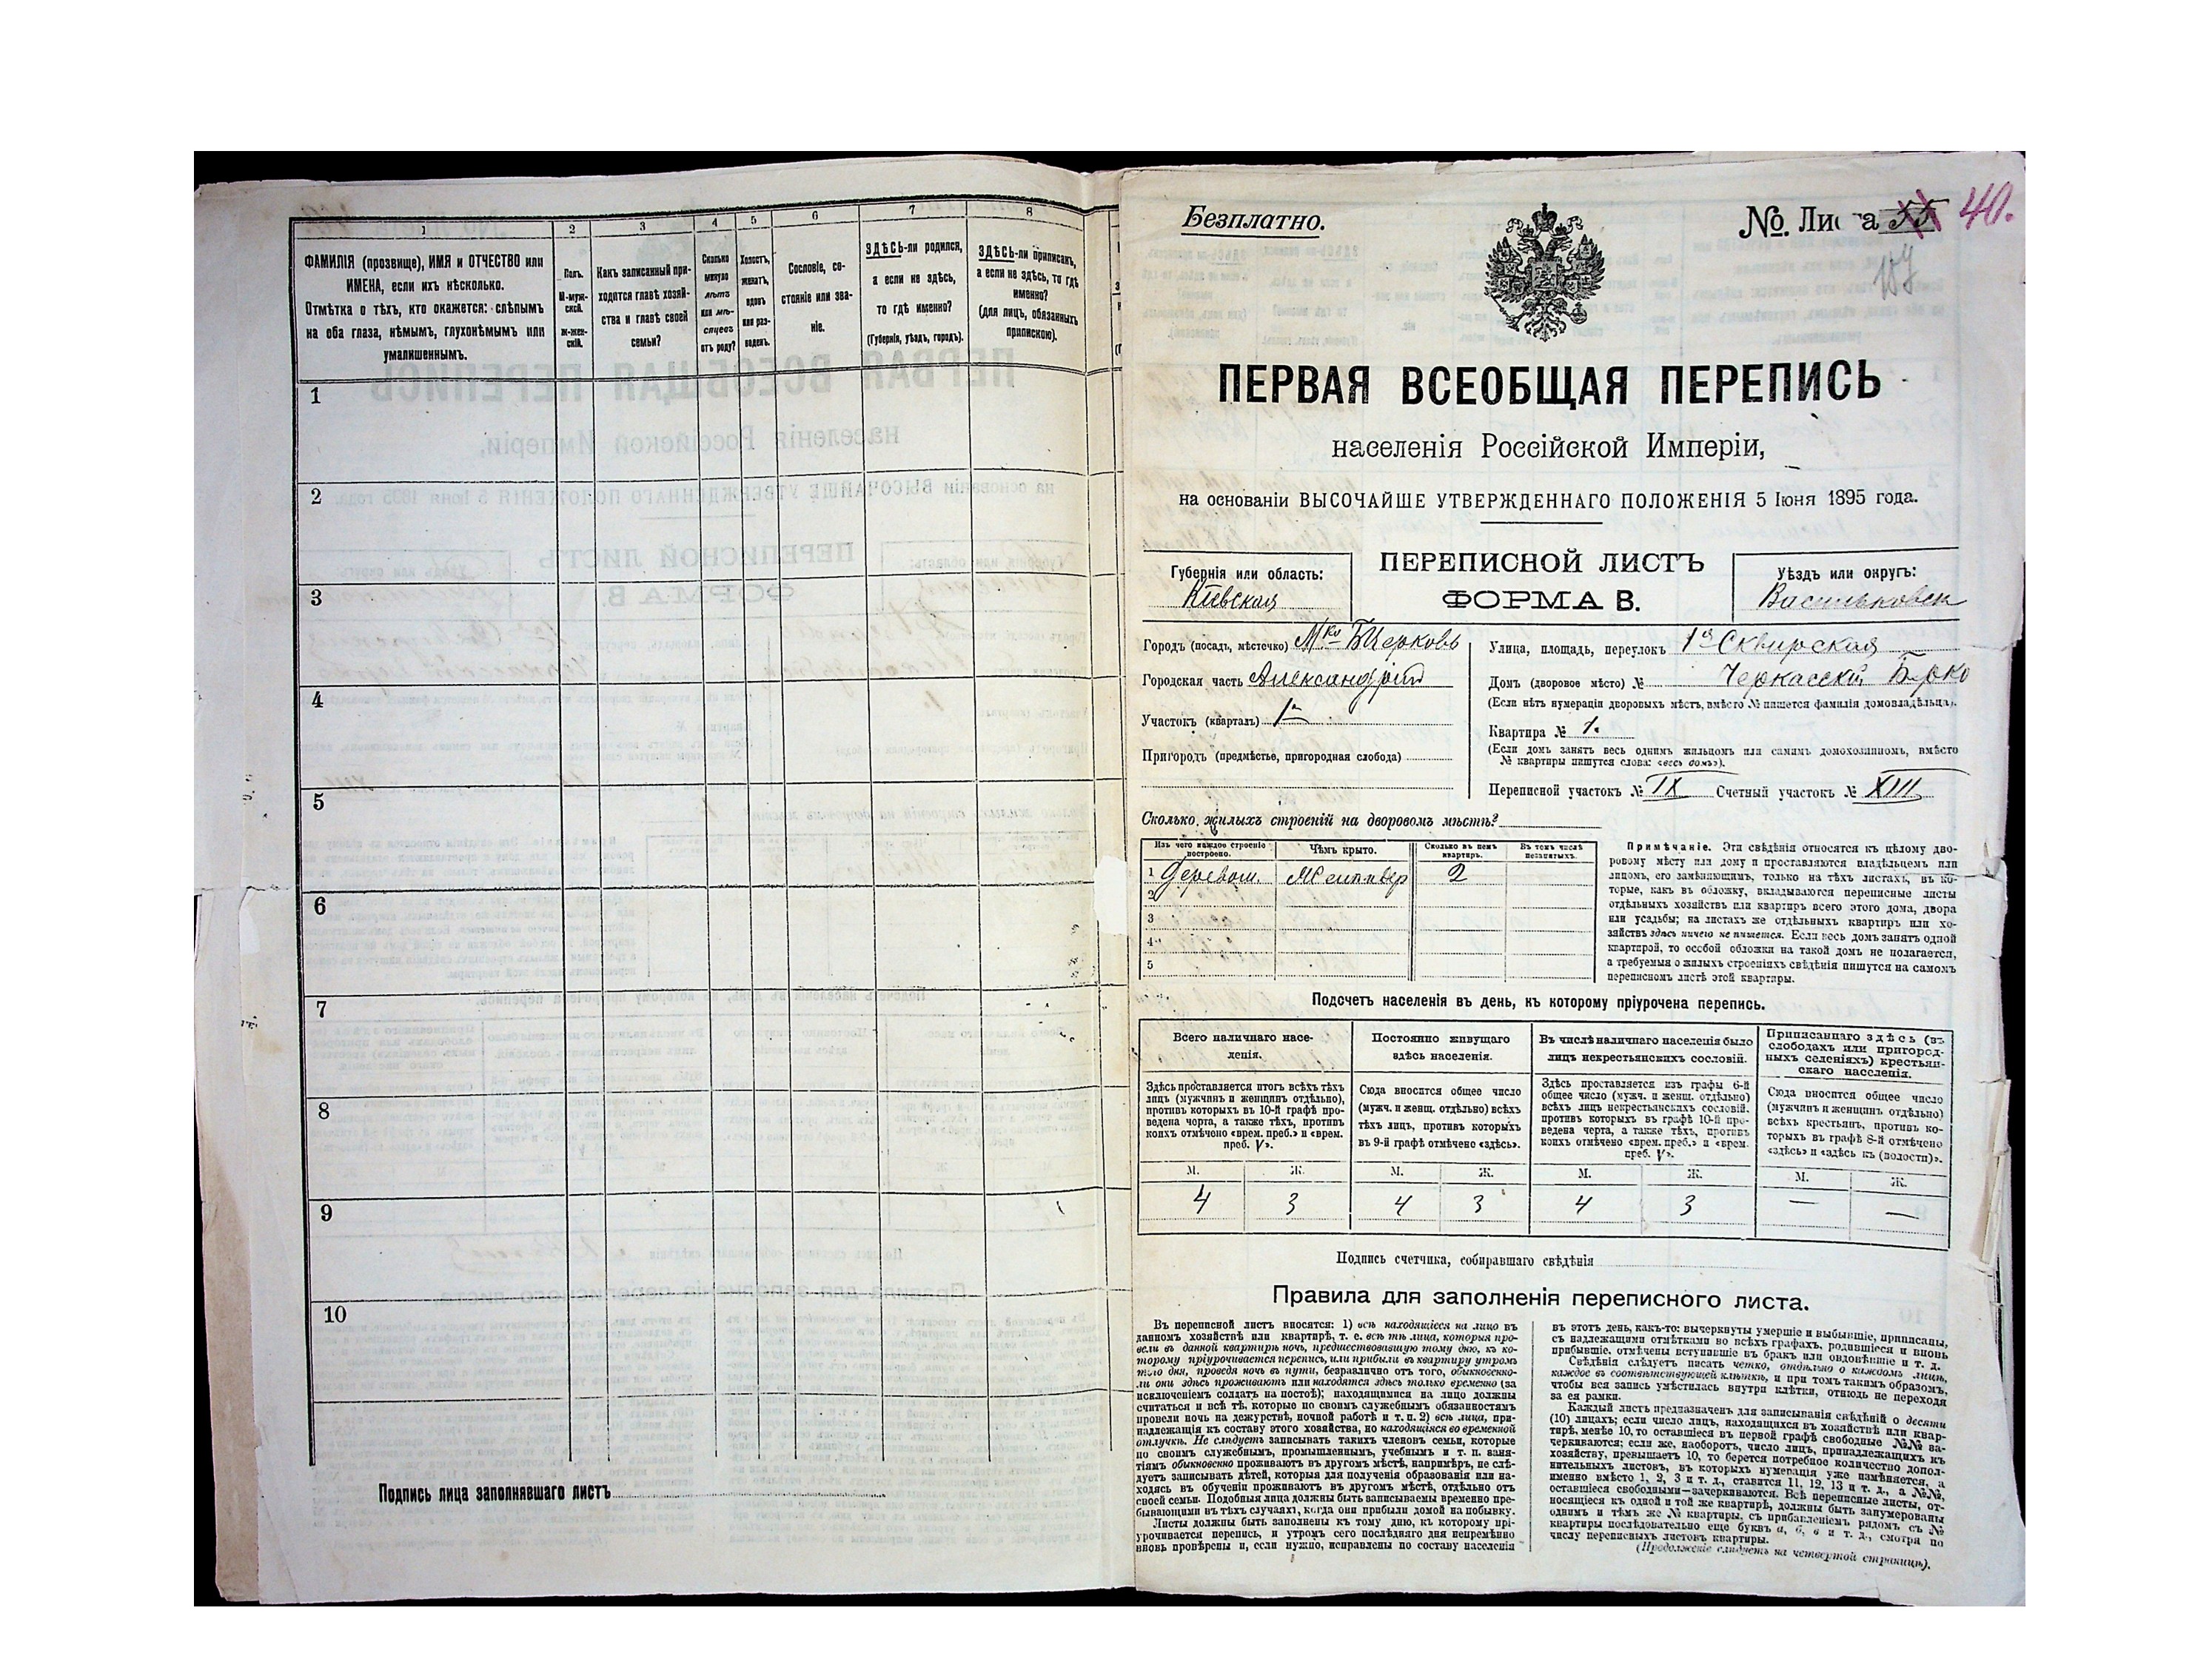 1
2
3
4
5
6
7
8
ФАМИЛІЯ (прозвище), ИМЯ и ОТЧЕСТВО или
ИМЕНА, если ихъ нѣсколько.
Отмѣтка о тѣхъ, кто окажется: слѣпымъ
на оба глаза, нѣмымъ, глухонѣмымъ или
умалишеннымъ.
Полъ.
М-муж-
ской.
ж-жен-
скій.
Какъ записанный при-
ходится главѣ хозяй-
ства и главѣ своей
семьи?
Сколько
минуло
лѣтъ
или мѣ-
сяцевъ
отъ роду?
Холостъ,
женатъ,
вдовъ
или раз-
веденъ.
Сословіе, со-
стояніе или зва-
ніе.
ЗДѢСЬ-ли родился,
а если не здѣсь,
то гдѣ именно?
(Губернія, уѣздъ, городъ).
ЗДѢСЬ-ли приписанъ,
а если не здѣсь, то гдѣ
именно?
(для лицъ, обязанныхъ
припискою).
1
2
3
4
5
6
7
8
9
10
Подпись лица заполнявшаго листъ
Безплатно.
№. Листа 55 40.
ПЕРВАЯ ВСЕОБЩАЯ ПЕРЕПИСЬ
населенія Россійской Имперіи,
на основаніи ВЫСОЧАЙШЕ УТВЕРЖДЕННАГО ПОЛОЖЕНІЯ 5 Іюня 1895 года.
Губернія или область:
Кіевская
ПЕРЕПИСНОЙ ЛИСТЪ
ФОРМА В.
Уѣздъ или округъ:
Васильковск
Городъ (посадъ, мѣстечко) Мко БЦерковь
Городская часть Александрія
Участокъ (кварталъ) 1й
Пригородъ (предмѣстье, пригородная слобода)
Улица, площадь, переулокъ 1я Сквирская
Домъ (дворовое мѣсто) № Черкасскій
(Если нѣтъ нумераціи дворовыхъ мѣстъ, вмѣсто № пишется фамилія домовладѣльца).
Квартира № 1.
(Если домъ занятъ весь однимъ жильцомъ или самимъ домохозяиномъ, вмѣсто
№ квартиры пишутся слова: «весь домъ»).
Переписной участокъ № IX Счетный участокъ № XIII
Сколько жилыхъ строеній на дворовомъ мѣстѣ?
Изъ чего каждое строеніе
построено.
Чѣмъ крыто.
Сколько въ немъ
квартиръ.
Въ томъ числѣ
незанятыхъ.
1 Деревян. 2
2
3
4
5
Примѣчаніе. Эти свѣдѣнія относятся къ цѣлому дво-
ровому мѣсту или дому и проставляются владѣльцемъ или
лицомъ, его замѣняющимъ, только на тѣхъ листахъ, въ ко-
торые, какъ въ обложку, вкладываются переписные листы
отдѣльныхъ хозяйствъ или квартиръ всего этого дома, двора
или усадьбы; на листахъ же отдѣльныхъ квартиръ или хо-
зяйствъ здѣсь ничего не пишется. Если весь домъ занятъ одной
квартирой, то особой обложки на такой домъ не полагается,
а требуемыя о жилыхъ строеніяхъ свѣдѣнія пишутся на самомъ
переписномъ листѣ этой квартиры.
Подсчетъ населенія въ день, къ которому пріурочена перепись.
Всего наличнаго насе-
ленія.
Здѣсь проставляется итогъ всѣхъ тѣхъ
лицъ (мужчинъ и женщинъ отдѣльно),
противъ которыхъ въ 10-й графѣ про-
ведена черта, а также тѣхъ, противъ
коихъ отмѣчено «врем. преб.» и «врем.
преб. V».
Постоянно живущаго
здѣсь населенія.
Сюда вносится общее число
(мужч. и женщ. отдѣльно) всѣхъ
тѣхъ лицъ, противъ которыхъ
въ 9-й графѣ отмѣчено «здѣсь».
Въ числѣ наличнаго населенія было
лицъ некрестьянскихъ сословій.
Здѣсь проставляется изъ графы 6-й
общее число (мужч. и женщ. отдѣльно)
всѣхъ лицъ некрестьянскихъ сословій,
противъ которыхъ въ графѣ 10-й про-
ведена черта, а также тѣхъ, противъ
коихъ отмѣчено «врем. преб.» и «врем.
преб. V».
Приписаннаго здѣсь (въ
слободахъ или пригород-
ныхъ селеніяхъ) крестьян-
скаго населенія.
Сюда вносится общее число
(мужчинъ и женщинъ отдѣльно)
всѣхъ крестьянъ, противъ ко-
торыхъ въ графѣ 8-й отмѣчено
«здѣсь» и «здѣсь къ (волости)».
М. Ж. М. Ж. М. Ж. М. Ж.
4 3 4 3 4 3 — —
Подпись счетчика, собиравшаго свѣдѣнія
Правила для заполненія переписного листа.
Въ переписной листъ вносятся: 1) всѣ находящіеся на лицо въ
данномъ хозяйствѣ или квартирѣ, т. е. всѣ тѣ лица, которыя про-
вели въ данной квартирѣ ночь, предшествовавшую тому дню, къ ко-
торому пріурочивается перепись, или прибыли въ квартиру утромъ
того дня, проведя ночь въ пути, безразлично отъ того, обыкновенно-
ли они здѣсь проживаютъ или находятся здѣсь только временно (за
исключеніемъ солдатъ на постоѣ); находящимися на лицо должны
считаться и всѣ тѣ, которые по своимъ служебнымъ обязанностямъ
провели ночь на дежурствѣ, ночной работѣ и т. п. 2) всѣ лица, при-
надлежащія къ составу этого хозяйства, но находящіяся во временной
отлучкѣ. Не слѣдуетъ записывать такихъ членовъ семьи, которые
по своимъ служебнымъ, промышленнымъ, учебнымъ и т. п. заня-
тіямъ обыкновенно проживаютъ въ другомъ мѣстѣ, напримѣръ, не слѣ-
дуетъ записывать дѣтей, которыя для полученія образованія или на-
ходясь въ обученіи проживаютъ въ другомъ мѣстѣ, отдѣльно отъ
своей семьи. Подобныя лица должны быть записываемы временно пре-
бывающими въ тѣхъ случаяхъ, когда они прибыли домой на побывку.
Листы должны быть заполнены къ тому дню, къ которому прі-
урочивается перепись, и утромъ сего послѣдняго дня непремѣнно
вновь провѣрены и, если нужно, исправлены по составу населенія
въ этотъ день, какъ-то: вычеркнуты умершіе и выбывшіе, приписаны,
съ надлежащими отмѣтками во всѣхъ графахъ, родившіеся и вновь
прибывшіе, отмѣчены вступившіе въ бракъ или овдовѣвшіе и т. д.
Свѣдѣнія слѣдуетъ писать четко, отдѣльно о каждомъ лицѣ,
каждое въ соотвѣтствующей клѣткѣ, и при томъ такимъ образомъ,
чтобы вся запись умѣстилась внутри клѣтки, отнюдь не переходя
за ея рамки.
Каждый листъ предназначенъ для записыванія свѣдѣній о десяти
(10) лицахъ; если число лицъ, находящихся въ хозяйствѣ или квар-
тирѣ, менѣе 10, то оставшіеся въ первой графѣ свободные №№ за-
черкиваются; если же, наоборотъ, число лицъ, принадлежащихъ къ
хозяйству, превышаетъ 10, то берется потребное количество допол-
нительныхъ листовъ, въ которыхъ нумерація уже измѣняется, а
именно вмѣсто 1, 2, 3 и т. д., ставится 11, 12, 13 и т. д., а №№,
оставшіеся свободными—зачеркиваются. Всѣ переписные листы, от-
носящіеся къ одной и той же квартирѣ, должны быть занумерованы
однимъ и тѣмъ же № квартиры, съ прибавленіемъ рядомъ съ №
квартиры послѣдовательно еще буквъ а, б, в и т. д., смотря по
числу переписныхъ листовъ квартиры.
(Продолженіе слѣдуетъ на четвертой страницѣ).